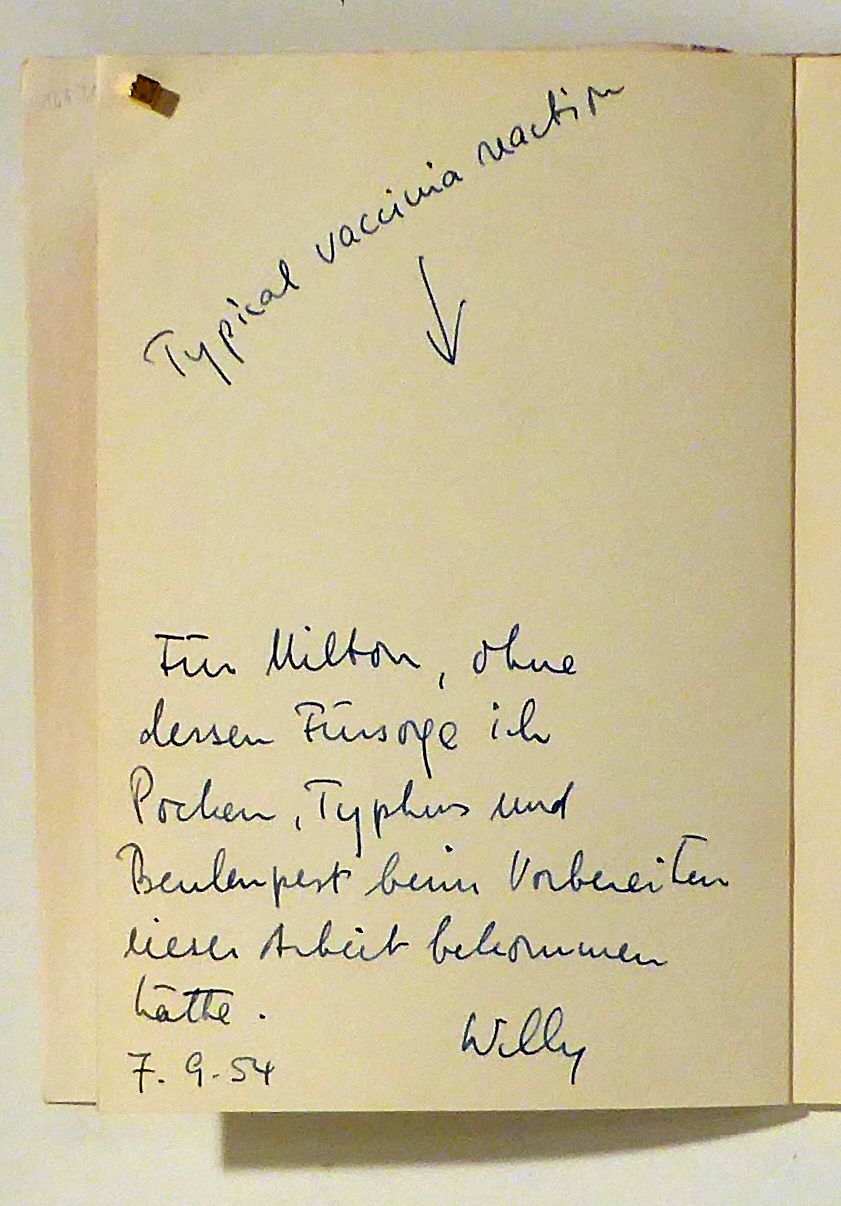 Typical vaccinia reaction
Für Milton, ohne
dessen Fürsorge ich
Pocken, Typhus und
Beulenpest beim Vorbereiten
dieser Arbeit bekommen
hätte.
Willy
7. 9. 54